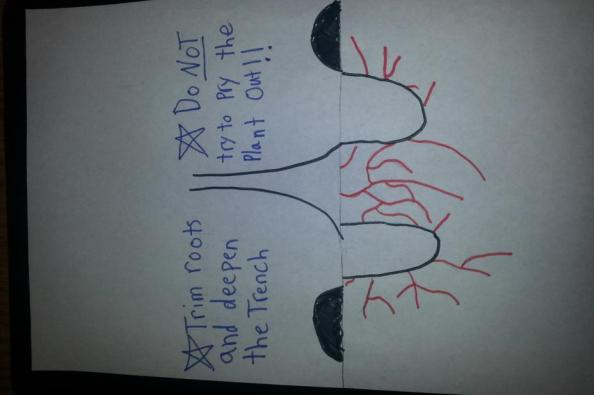 ☆Trim roots
and deepen
the Trench
☆ Do NOT
try to Pry the
Plant Out!!